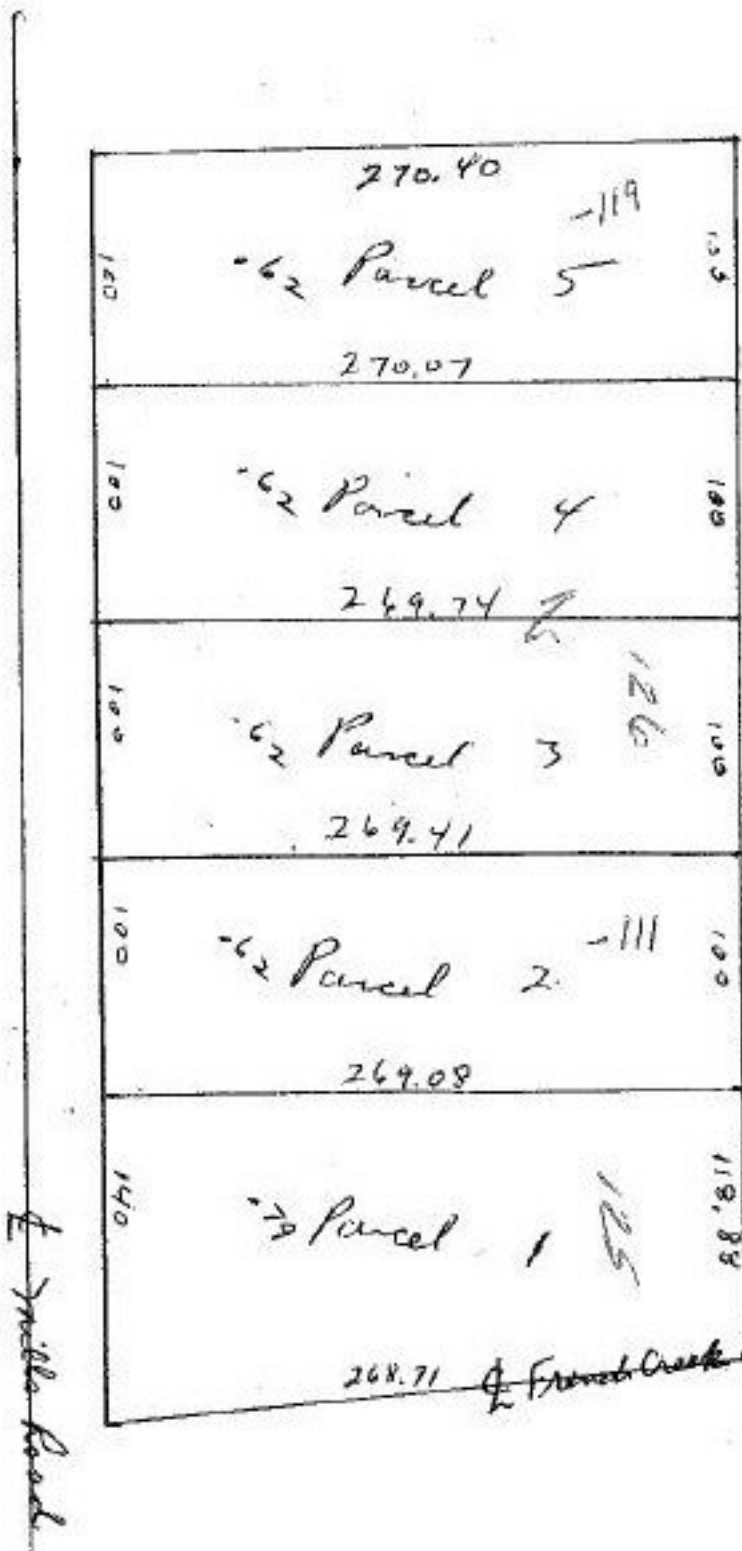 270.40
-119
100
.62 Parcel 5
100
270.07
100
.62 Parcel 4
100
269.74
100
.62 Parcel 3
126
100
269.41
100
.62 Parcel 2
-111
100
269.08
140
.79 Parcel 1
125
118.88
268.71 ℄ French Creek
℄ Mills Road